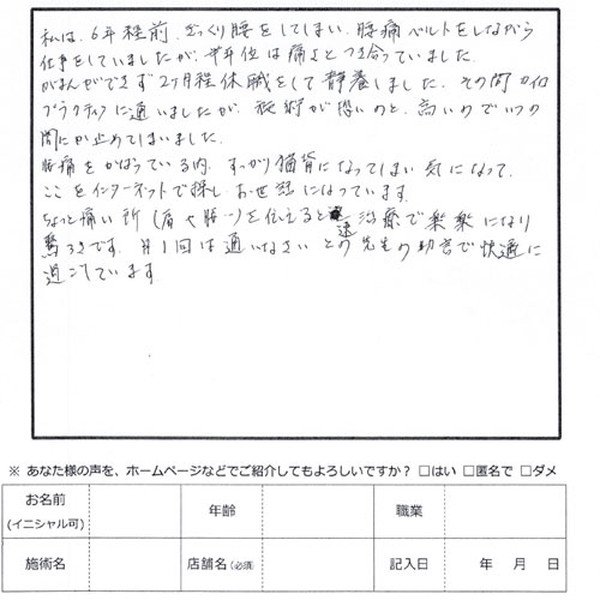 私は、6年程前、ぎっくり腰をしてしまい、腰痛ベルトをしながら
仕事をしていましたが、半年位は痛さとつき合っていました。
がまんができず2ヶ月程休職をして静養しました。その間カイロ
プラクティクに通いましたが、施術が恐いのと、高いのでいつの
間にか止めてしまいました。
腰痛をかばっている内、すっかり猫背になってしまい気になって、
ここをインターネットで探し、お世話になっています。
ちょっと痛い所(肩や腰…)を伝えると速治療で楽楽になり
驚きです。月1回は通いなさいとの先生の助言で快適に
過ごしています
※ あなた様の声を、ホームページなどでご紹介してもよろしいですか？ □はい □匿名で □ダメ
お名前 年齢 職業
(イニシャル可)
施術名 店舗名(必須) 記入日 年 月 日